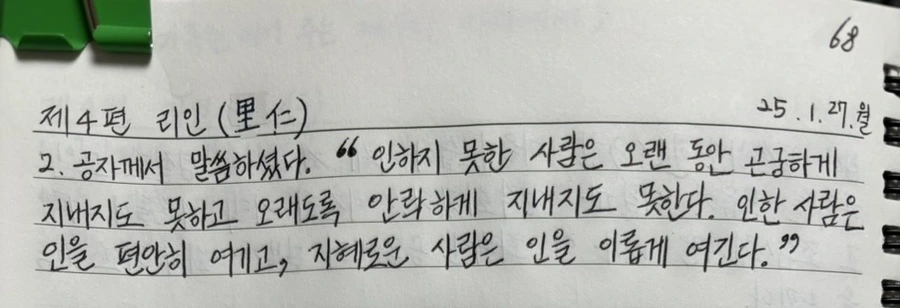 68
제4편 리인(里仁) 25.1.27.월
2. 공자께서 말씀하셨다. “인하지 못한 사람은 오랜 동안 곤궁하게
지내지도 못하고 오래도록 안락하게 지내지도 못한다. 인한 사람은
인을 편안히 여기고, 지혜로운 사람은 인을 이롭게 여긴다.”